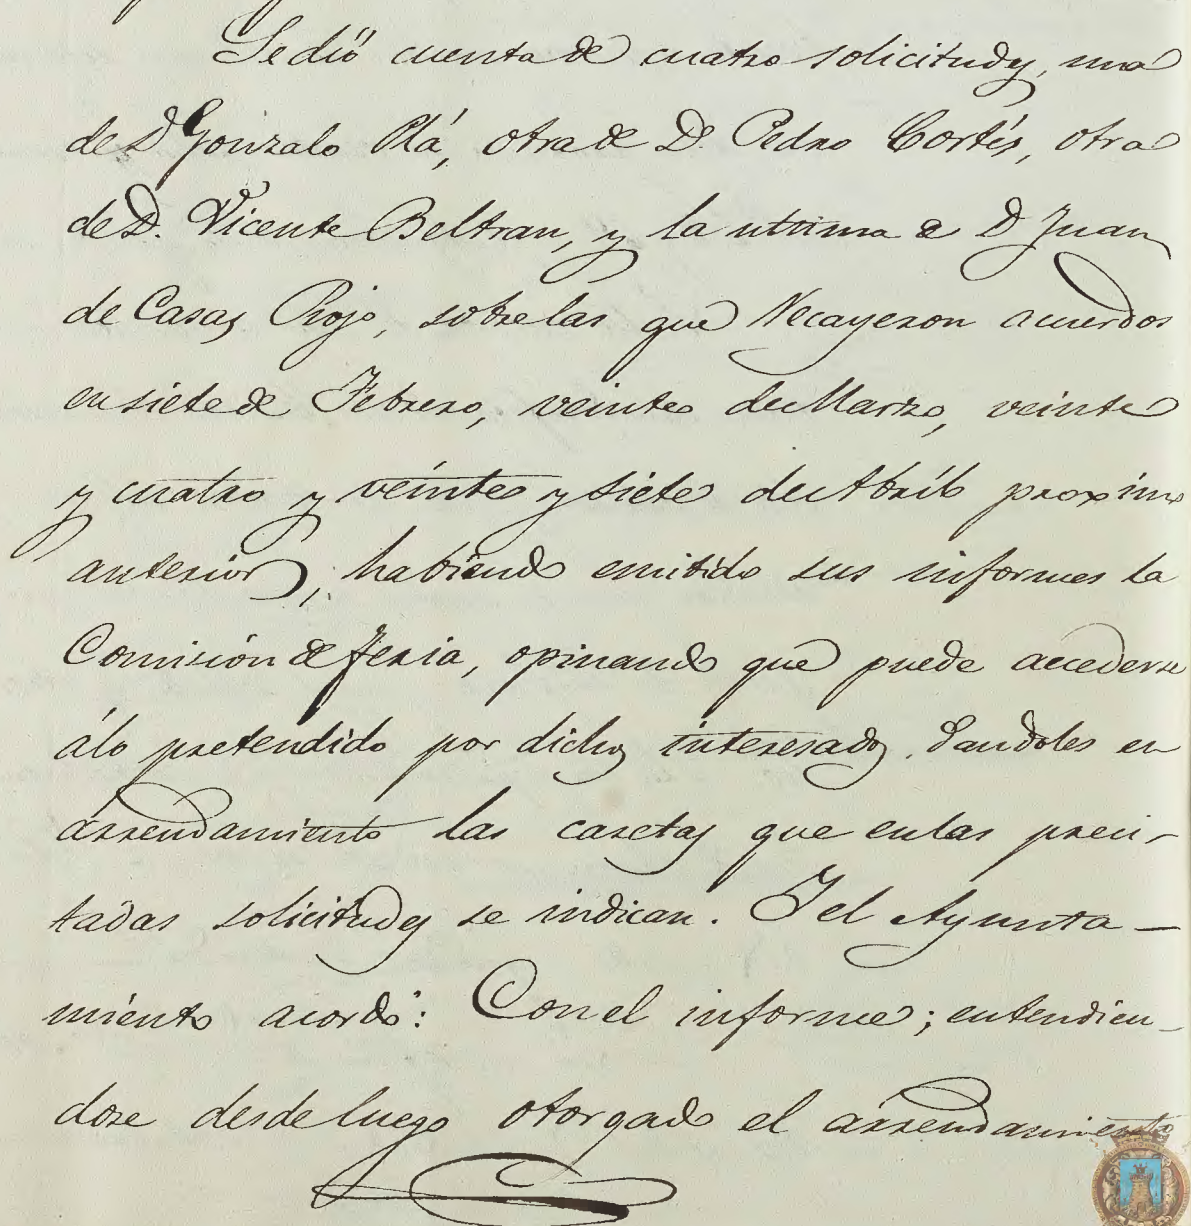 Se dió cuenta de cuatro solicitudes, una
de D Gonzalo Plá, otra de D. Pedro Cortés, otra
de D. Vicente Beltran, y la ultima de D Juan
de Casas Rojo, sobre las que recayeron acuerdos
en siete de Febrero, veinte de Marzo, veinte
y cuatro y veinte y siete de Abril proximo
anterior, habiendo emitido sus informes la
Comisión de feria, opinando que puede accederse
á lo pretendido por dichos interesados, dandoles en
arrendamiento las casetas que en las preci-
tadas solicitudes se indican. Y el Ayunta-
miento acordó: Con el informe; entendien-
dose desde luego otorgado el arrendamiento